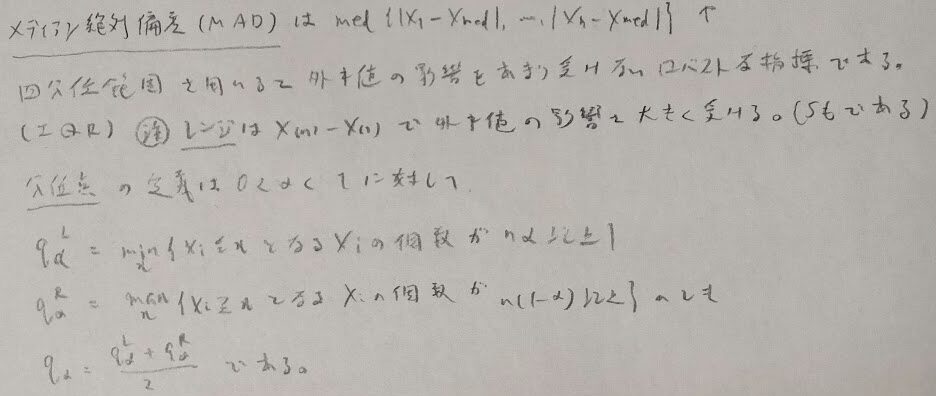 メディアン絶対偏差(MAD)は med {|X₁-Xmed|, …, |Xn-Xmed|} ↑
四分位範囲を用いると外れ値の影響をあまり受けないロバストな指標である。
(IQR) 注 レンジは X(n)-X(1) で外れ値の影響を大きく受ける。(Sもである)
分位点の定義は 0<α<1に対して
qαᴸ = min x {Xi≦xとなるXiの個数がnα以上}
qαᴿ = max x {Xi≧xとなるXiの個数がn(1-α)以上}のとき
qα = (qαᴸ+qαᴿ)/2 である。